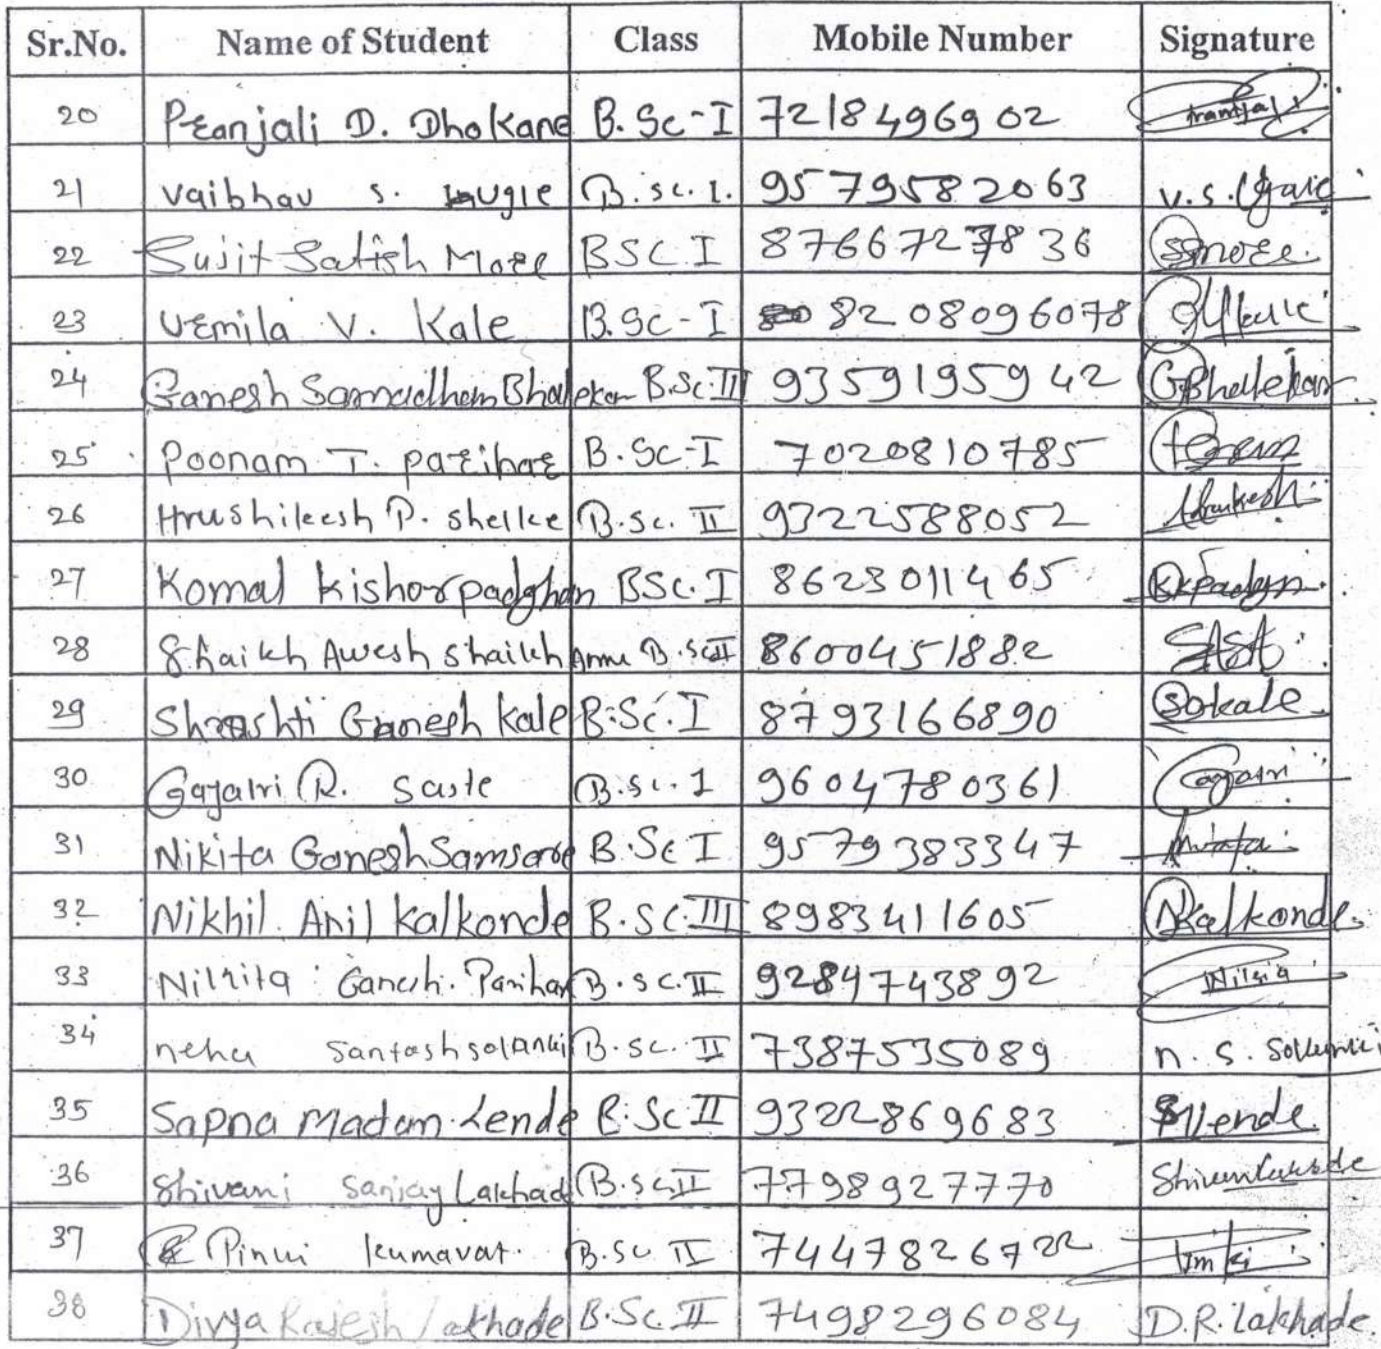 Sr.No. Name of Student Class Mobile Number Signature
20 Pranjali D. Dhokane B.Sc-I 7218496902
21 Vaibhav S. B.sc.I. 9579582063 v.s.
22 Sujit Satish More BSC I 8766727836 SSmore.
23 Urmila V. Kale B.Sc-I 8208096078
24 Ganesh Samadhan Bhalekar B.Sc.III 9359195942 GBhalekar
25 Poonam T. Parihar B.Sc-I 7020810785
26 Hrushikesh P. shelke B.sc. II 9322588052
27 Komal Kishor padghan BSc.I 8623011465 KKPadgn.
28 Shaikh Awesh Shaikh B.sc II 8600451882
29 Shrushti Ganesh Kale B.Sc.I 8793166890 SGkale
30 Gayatri R. Saste B.sc.I 9604780361 Gayatri
31 Nikita Ganesh B.Sc I 9579383347
32 Nikhil. Anil Kalkonde B.SC.III 8983411605 NKalkonde
33 Nikita Ganesh. Parihar B.sc.II 9284743892
34 neha Santosh solanki B.sc. II 7387535089 n. s. Solunki
35 Sapna Madan Lende B.Sc II 9322869683 SMLende
36 Shivani Sanjay Lakhad B.sc.II 7798927770
37 Pinki kumavat. B.sc II 7447826722
38 Divya Rajesh Lakhade B.Sc.II 7498296084 D.R.Lakhade